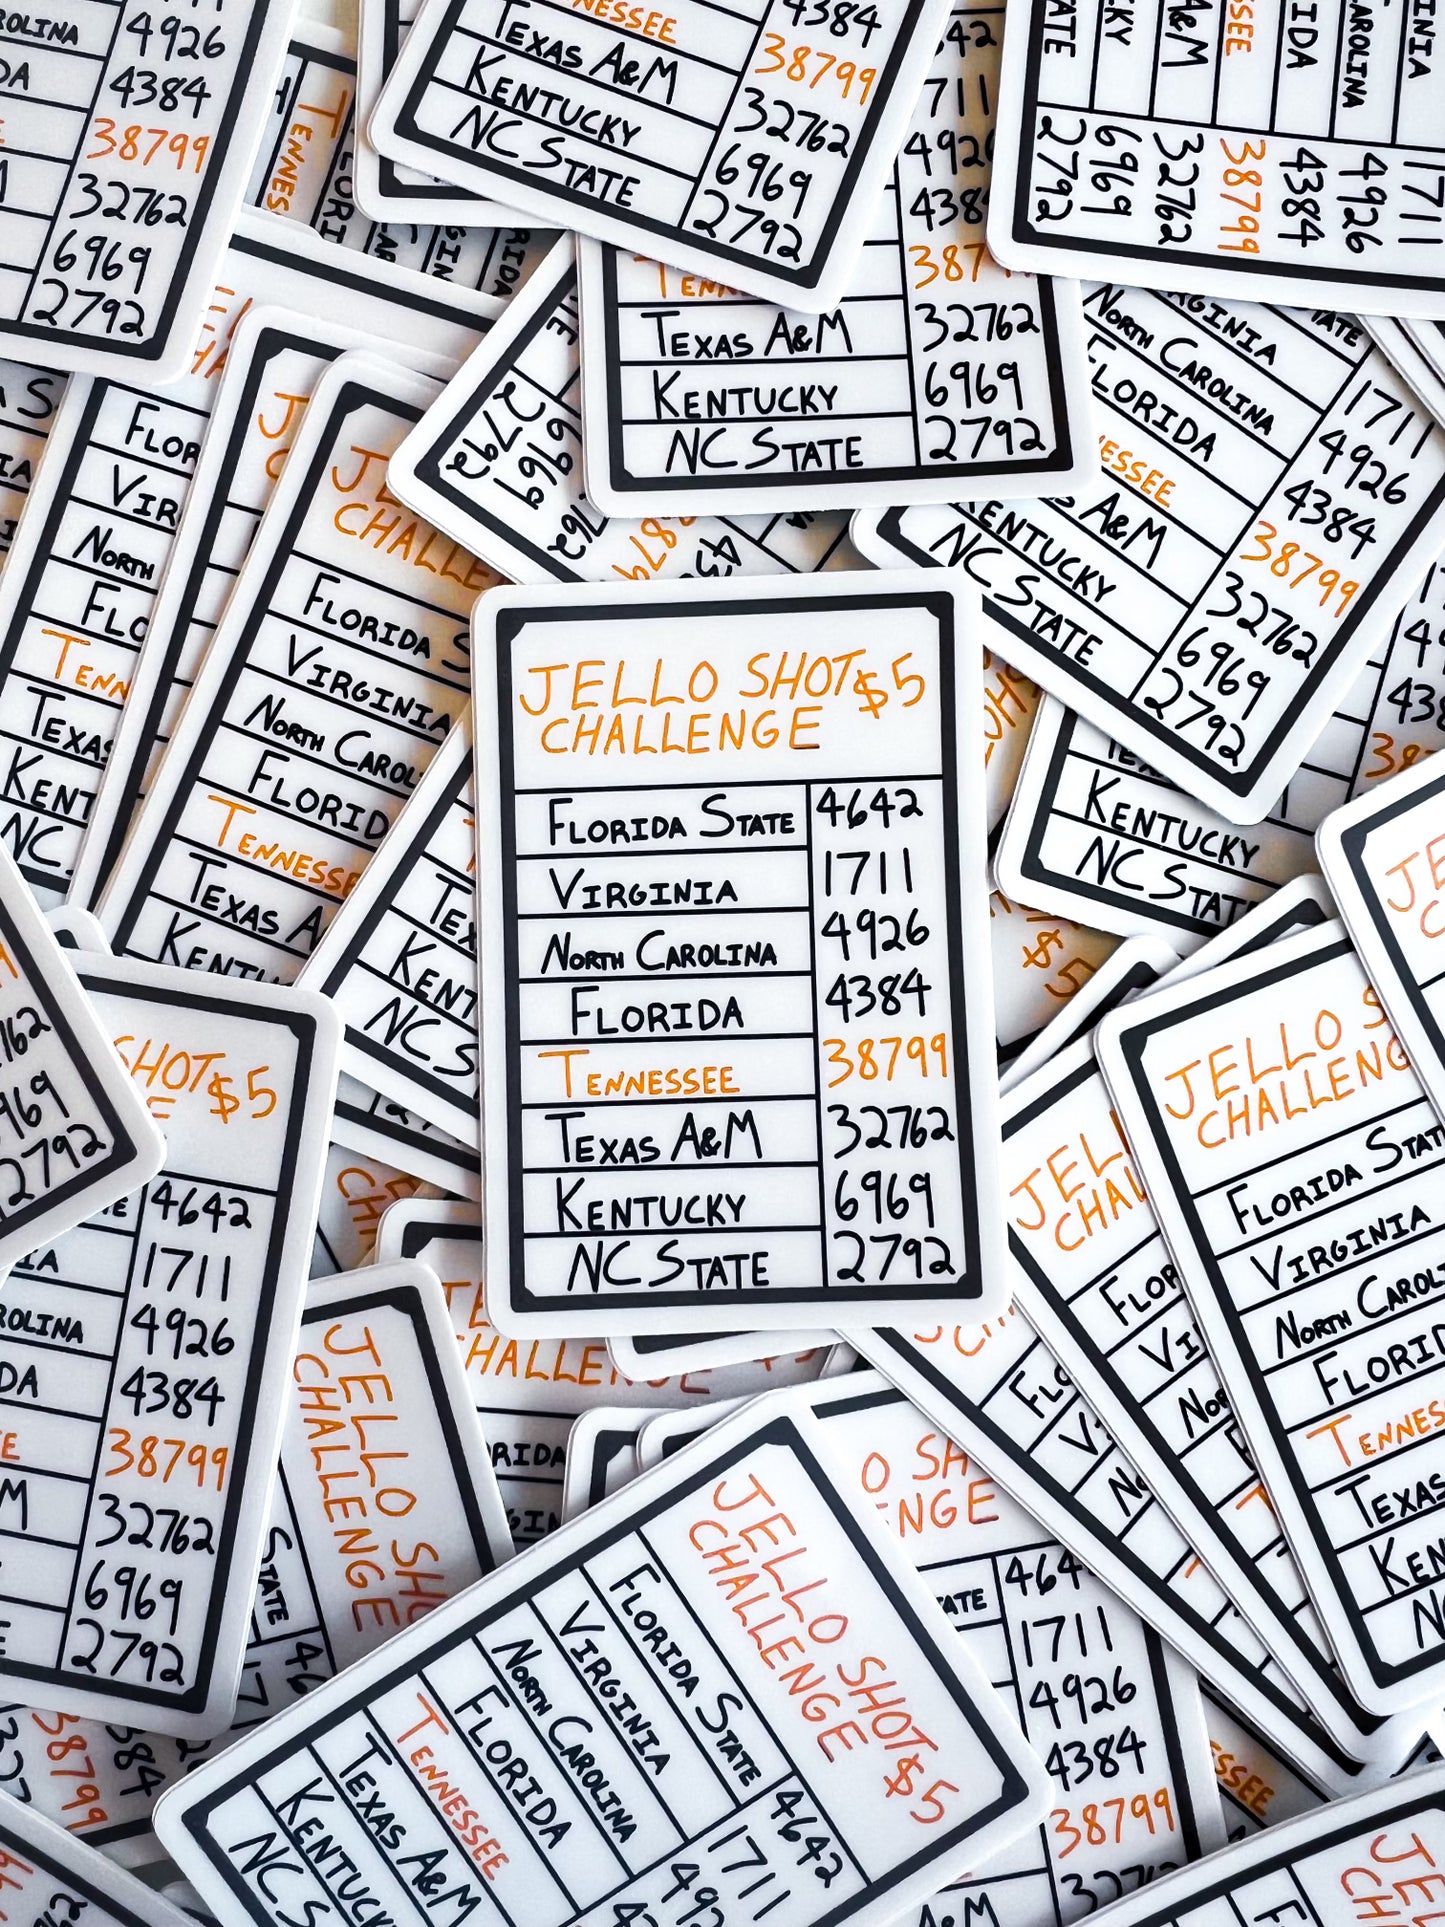 JELLO SHOT $5
CHALLENGE
FLORIDA STATE 4642
VIRGINIA 1711
NORTH CAROLINA 4926
FLORIDA 4384
TENNESSEE 38799
TEXAS A&M 32762
KENTUCKY 6969
NC STATE 2792